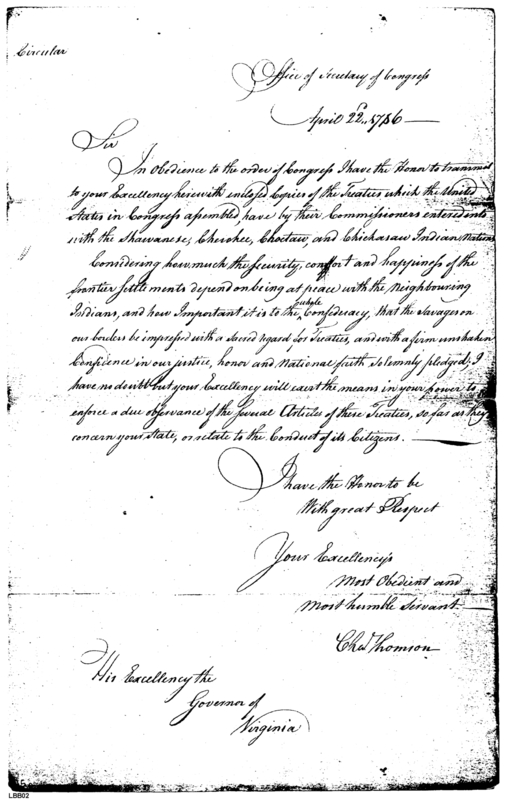 Circular
Office of Secretary of Congress
April 22d. 1786
Sir
In Obedience to the order of Congress I have the Honor to transmit
to your Excellency herewith enclosed Copies of the Treaties which the United
States in Congress assembled, have by their Commissioners entered into
with the Shawanese, Cherokee, Choctaw, and Chickasaw Indian Nations
Considering how much the Security, comfort and happiness of the
frontier Settlements depend on being at peace with the Neighbouring
Indians, and how Important it is to the whole Confederacy, that the Savages on
our borders be impressed with a Sacred regard for Treaties, and with a firm unshaken
Confidence in our justice, honor and National faith solemnly pledged; I
have no doubt but your Excellency will exert the means in your power to
enforce a due observance of the several Articles of these Treaties, so far as they
concern your State, or relate to the Conduct of its Citizens.
I have the Honor to be
With great Respect
Your Excellency's
Most Obedient and
Most humble Servant
Chas Thomson
His Excellency the
Governor of
Virginia
LBB02